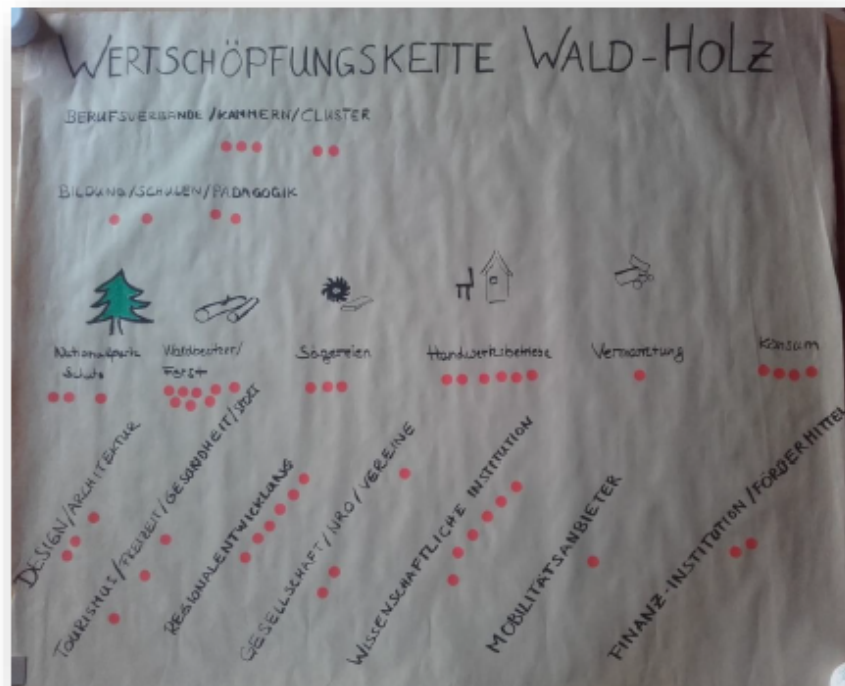 WERTSCHÖPFUNGSKETTE WALD-HOLZ
BERUFSVERBÄNDE/KAMMERN/CLUSTER
BILDUNG/SCHULEN/PÄDAGOGIK
Nationalpark
Schutz
Waldbesitzer/
Forst
Sägereien
Handwerksbetriebe
Vermarktung
Konsum
DESIGN/ARCHITEKTUR
TOURISMUS/FREIZEIT/GESUNDHEIT/SPORT
REGIONALENTWICKLUNG
GESELLSCHAFT/NRO/VEREINE
WISSENSCHAFTLICHE INSTITUTION
MOBILITÄTSANBIETER
FINANZ-INSTITUTION/FÖRDERMITTEL